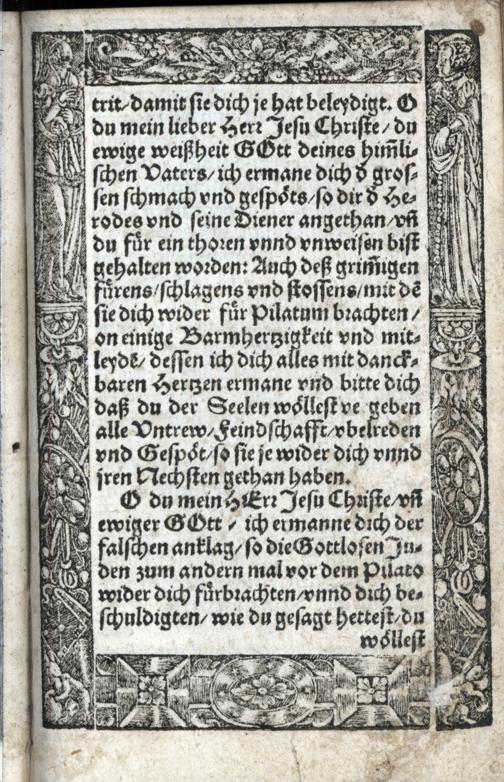 trit/ damit sie dich je hat beleydigt. O
du mein lieber Herr Jesu Christe/ du
ewige weißheit GOtt deines him̃li-
schen Vaters/ ich ermane dich d̕ gros-
sen schmach vnd gespöts/ so dir d̕ He-
rodes vnd seine Diener angethan/ vñ
du für ein thoren vnnd vnweisen bist
gehalten worden: Auch deß grim̃igen
fürens/ schlagens vnd stossens/ mit dẽ
sie dich wider für Pilatum brachten/
on einige Barmhertzigkeit vnd mit-
leydẽ/ dessen ich dich alles mit danck-
baren Hertzen ermane vnd bitte dich
daß du der Seelen wöllest ve geben
alle Vntrew/ Feindschafft/ vbelreden
vnd Gespöt/ so sie je wider dich vnnd
jren Nechsten gethan haben.
O du mein HErr Jesu Christe/ vñ
ewiger GOtt/ ich ermanne dich der
falschen anklag/ so die Gottlosen Ju-
den zum andern mal vor dem Pilato
wider dich fürbrachten/ vnnd dich be-
schuldigten/ wie du gesagt hettest/ du
wöllest